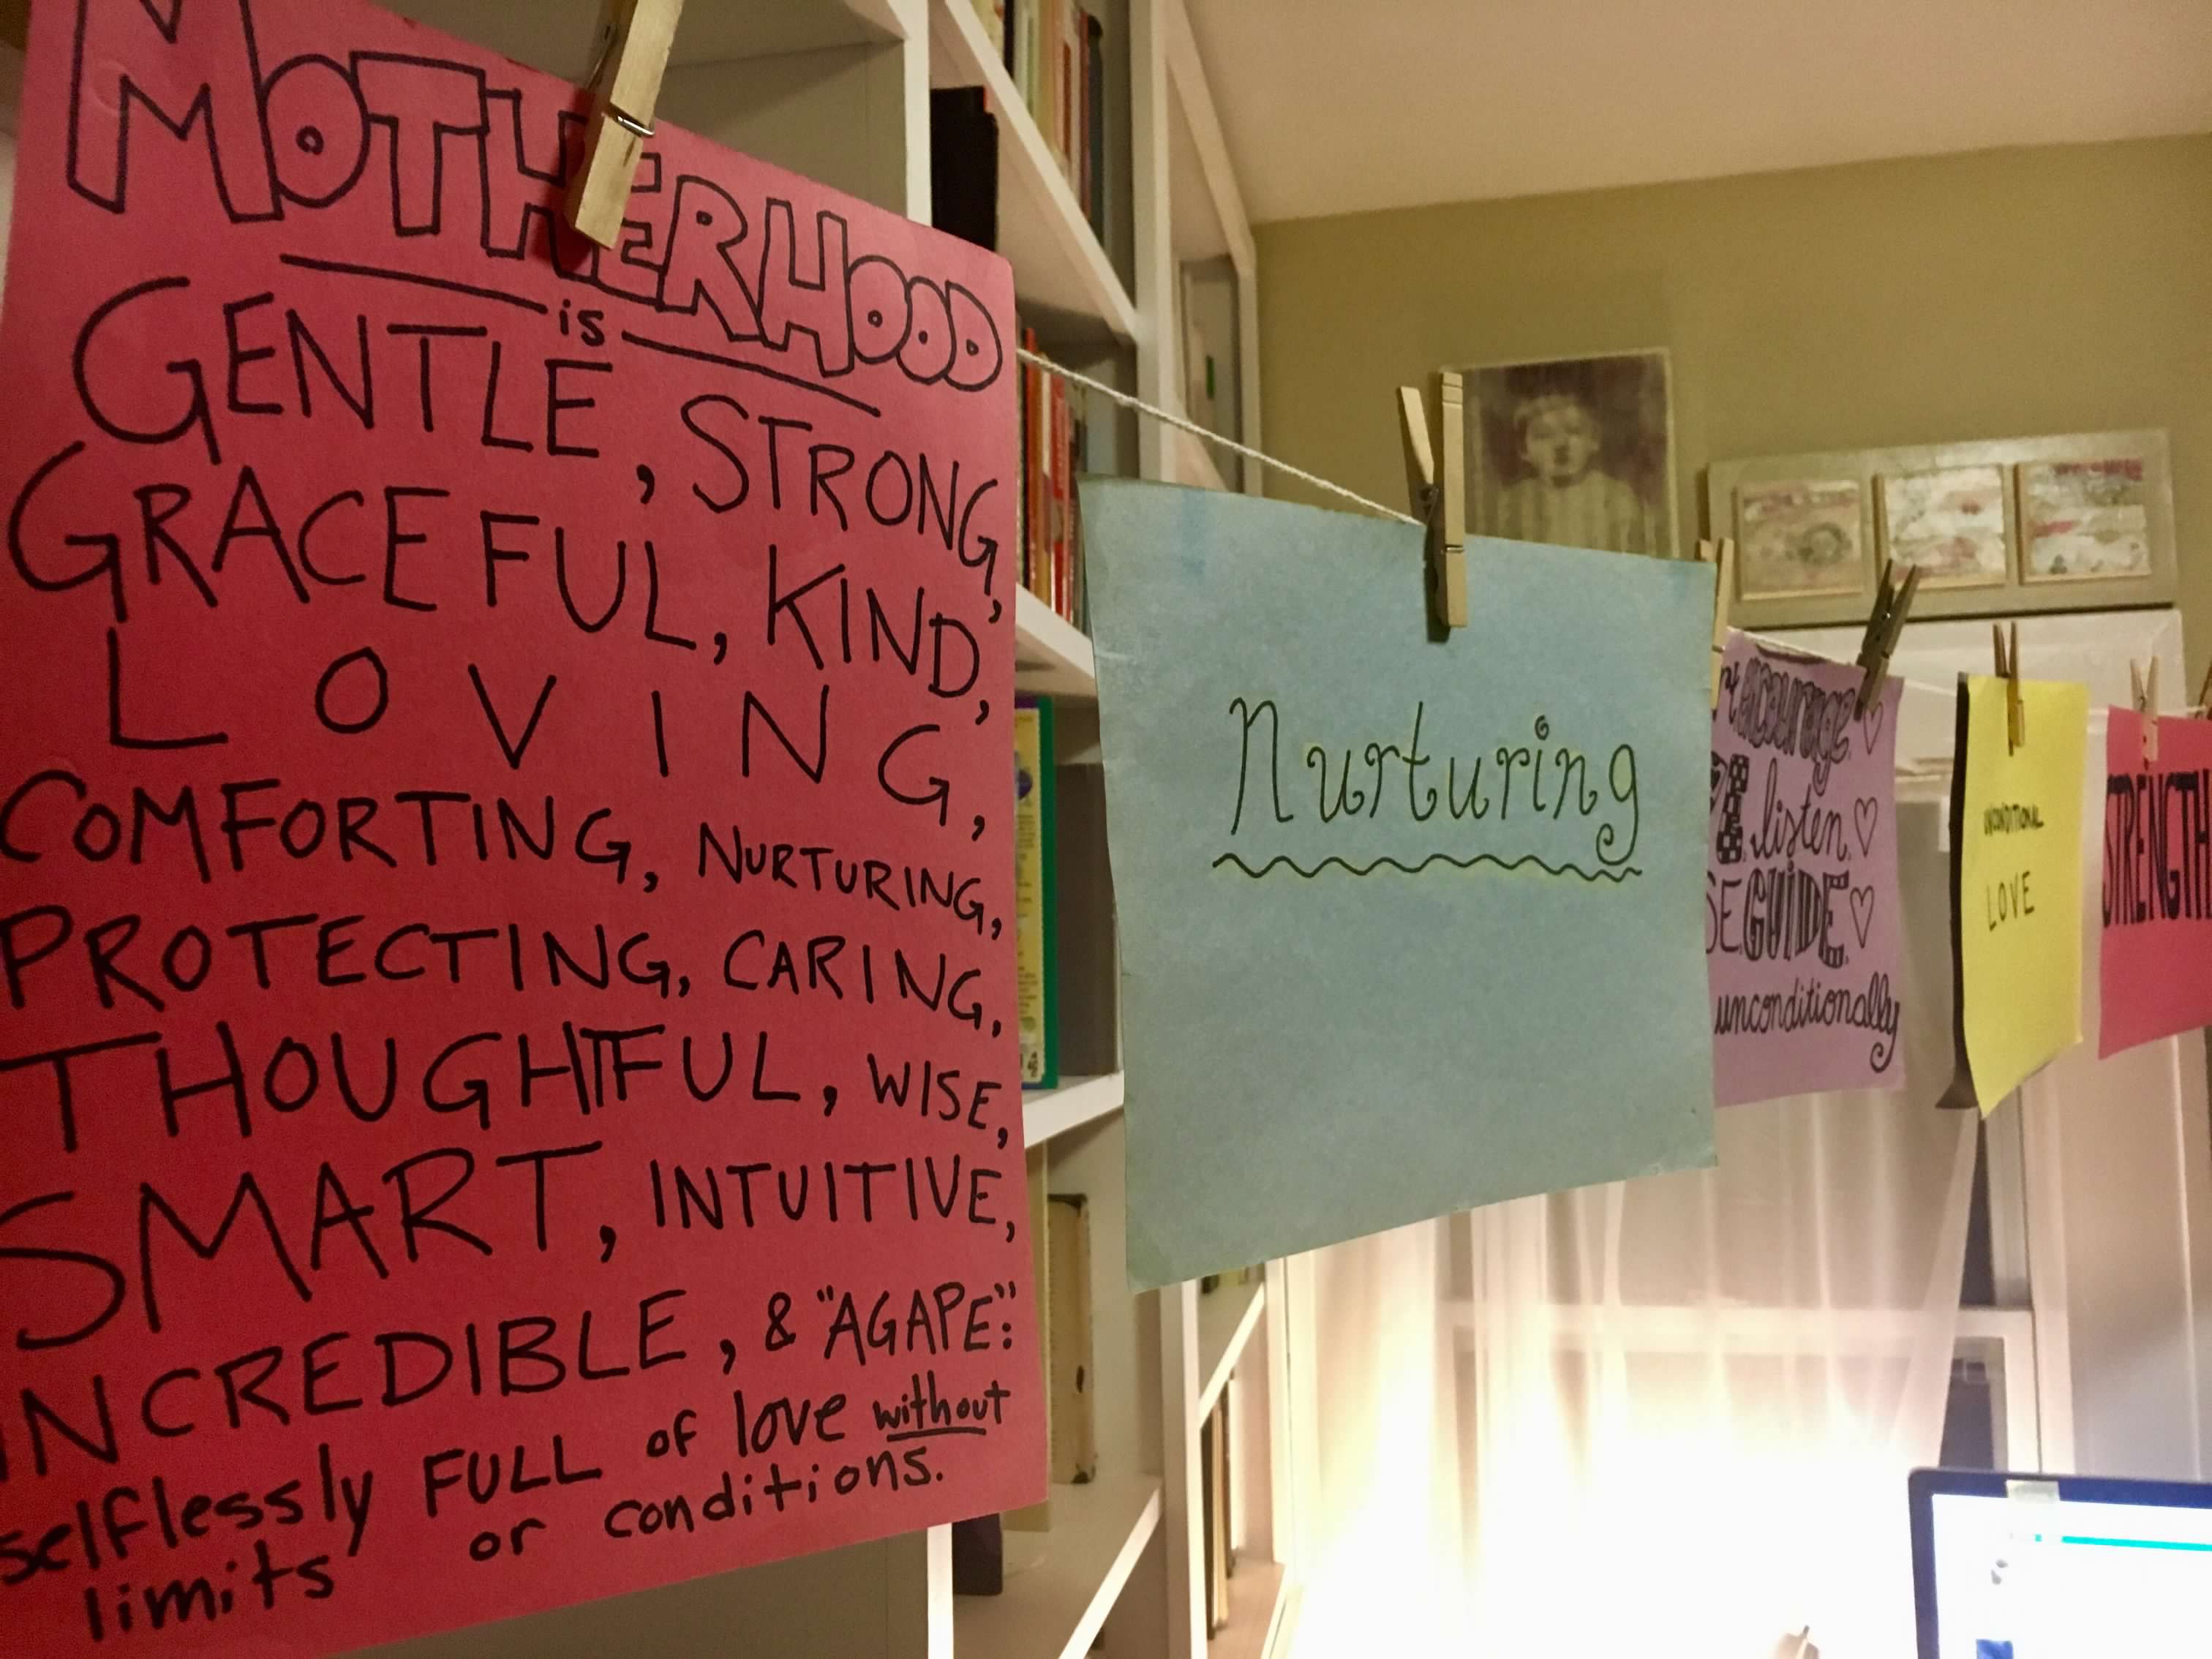 MOTHERHOOD
is
GENTLE, STRONG,
GRACEFUL, KIND,
LOVING,
COMFORTING, NURTURING,
PROTECTING, CARING,
THOUGHTFUL, WISE,
SMART, INTUITIVE,
INCREDIBLE, & "AGAPE":
selflessly FULL of love without
limits or conditions.
Nurturing
encourage ♡
listen. ♡
GUIDE. ♡
unconditionally
UNCONDITIONAL
LOVE
STRENGTH